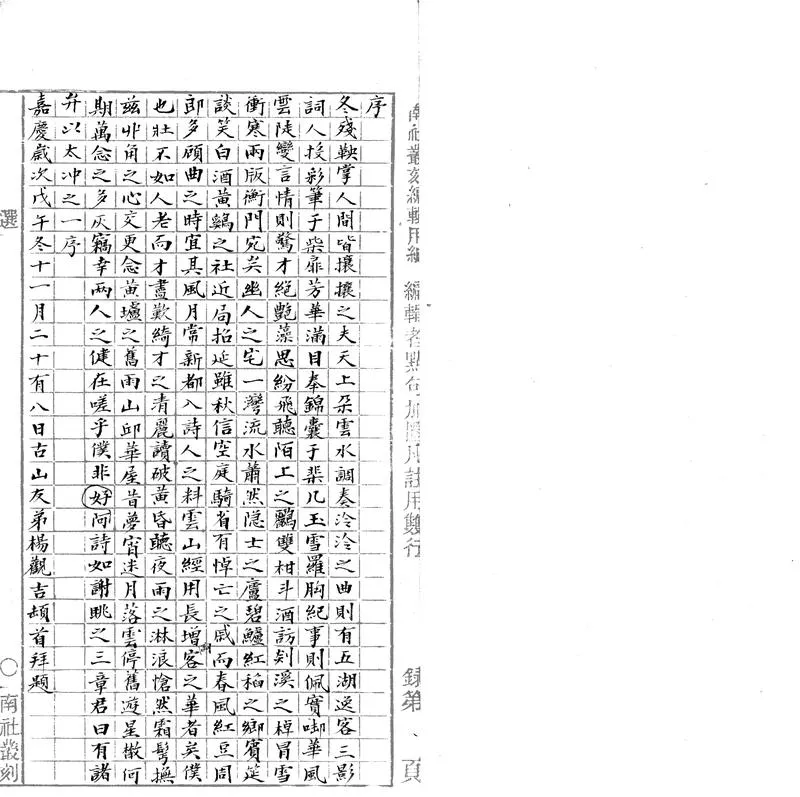 南社叢刻編輯用紙 編輯者點句加圈凡註用雙行
錄第 頁
序
冬殘鞅掌人間皆攘攘之夫天上朵雲水調奏泠泠之曲則有五湖逸客三影
詞人投彩筆于柴扉芳華滿目奉錦囊于棐几玉雪羅胸紀事則佩寶啣華風
雲陡變言情則驚才絕艷藻思紛飛聽陌上之鸝雙柑斗酒訪剡溪之棹冒雪
衝寒兩版衡門宛矣幽人之宅一灣流水蕭然隱士之廬碧鱸紅稻之鄉賓筵
談笑白酒黃鷄之社近局招延雖秋信空庭騎省有悼亡之戚而春風紅豆周
郎多顧曲之時宜其風月常新都入詩人之料雲山經用長增客之華者矣僕
也壯不如人老而才盡歎綺才之清麗讀破黃昏聽夜雨之淋浪愴然霜髩撫
茲丱角之心交更念黃壚之舊雨山邱華屋昔夢宵迷月落雲停舊遊星散何
期萬念之多灰竊幸兩人之健在嗟乎僕非好阿詩如謝朓之三章君曰有諸
弁以太沖之一序
嘉慶歲次戊午冬十一月二十有八日古山友弟楊觀吉頓首拜題
選
○南社叢刻